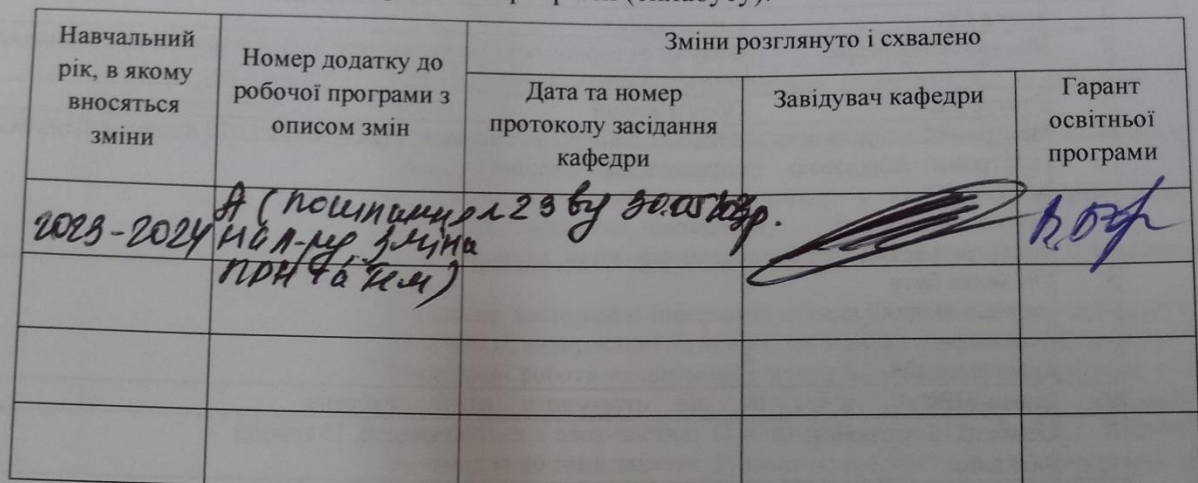 (силабусу).
Навчальний рік, в якому вносяться зміни
Номер додатку до робочої програми з описом змін
Зміни розглянуто і схвалено
Дата та номер протоколу засідання кафедри
Завідувач кафедри
Гарант освітньої програми
2023-2024
А (
на л-ру, зміна
ПРН та тем)
23 від 30.05